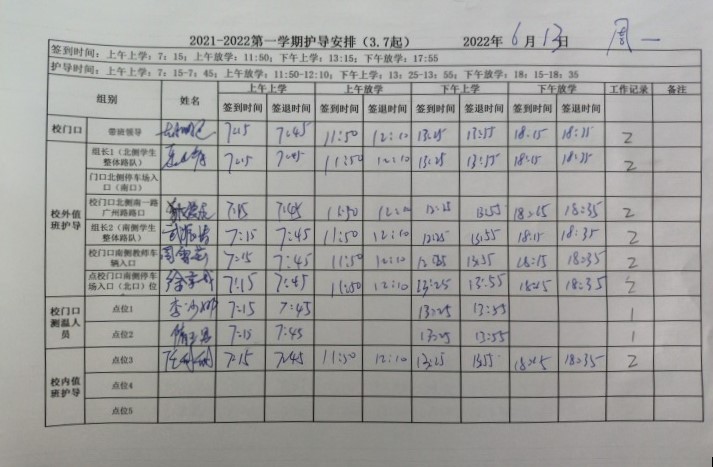 2021-2022第一学期护导安排（3.7起） 2022年 6 月 13 日 周一
签到时间：上午上学：7：15；上午放学：11:50；下午上学：13:15；下午放学：17:55
护导时间：上午上学：7：15-7：45；上午放学：11:50-12:10；下午上学：13：25-13：55；下午放学：18：15-18：35
组别 姓名 上午上学 上午放学 下午上学 下午放学 工作记录 备注
签到时间 签退时间 签到时间 签退时间 签到时间 签退时间 签到时间 签退时间
校门口 带班领导 7:15 7:45 11:50 12:10 13:25 13:55 18:15 18:35 2
校外值班护导
组长1（北侧学生整体路队） 7:15 7:45 11:50 12:10 13:25 13:55 18:15 18:35 2
门口北侧停车场入口（南口）
校门口北侧南一路广州路路口 7:15 7:45 11:50 12:10 13:55 18:15 18:35 2
组长2（南侧学生整体路队） 7:15 7:45 11:50 12:10 13:55 18:15 18:35 2
校门口南侧教师车辆入口 7:15 7:45 11:50 12:10 18:15 18:35 2
点校门口南侧停车场入口（北口）位 7:15 7:45 11:50 12:10 13:25 13:55 18:15 18:35 2
校门口测温人员
点位1 7:15 7:45 13:25 13:55 1
点位2 7:15 7:45 13:25 13:55 1
校内值班护导
点位3 7:15 7:45 11:50 12:10 13:25 13:55 18:15 18:35 2
点位4
点位5